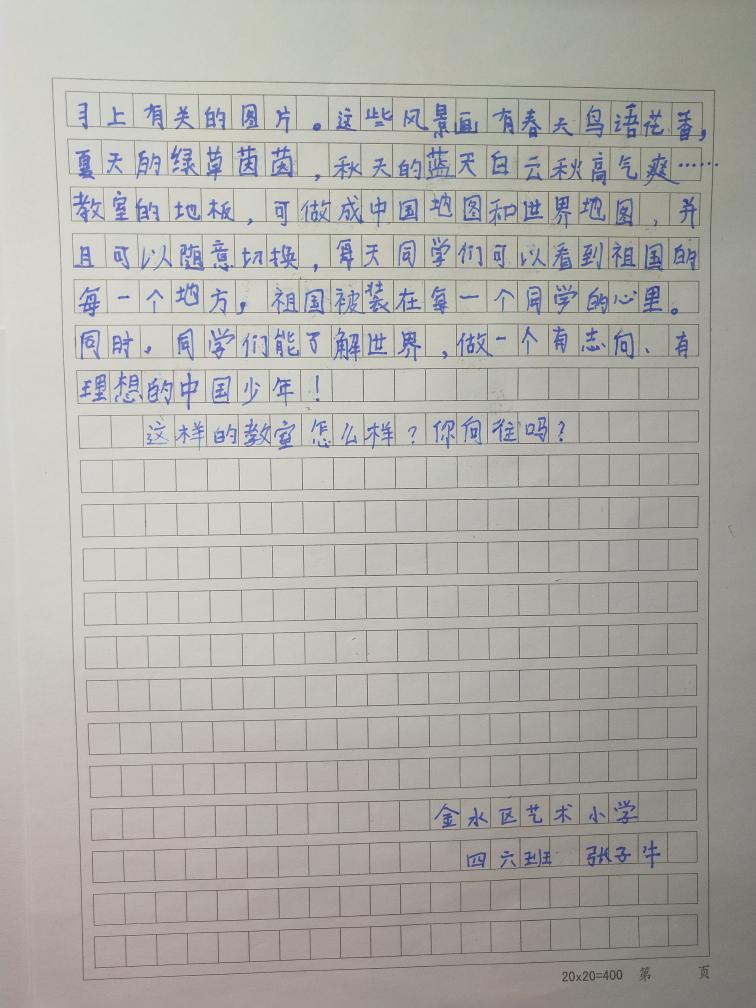 上有关的图片。这些风景画有春天鸟语花香，
夏天的绿草茵茵，秋天的蓝天白云秋高气爽……
教室的地板，可做成中国地图和世界地图，并
且可以随意切换，每天同学们可以看到祖国的
每一个地方，祖国被装在每一个同学的心里。
同时，同学们能了解世界，做一个有志向、有
理想的中国少年！
这样的教室怎么样？你向往吗？
金水区艺术小学
四六班 张子牛
20×20=400 第 页